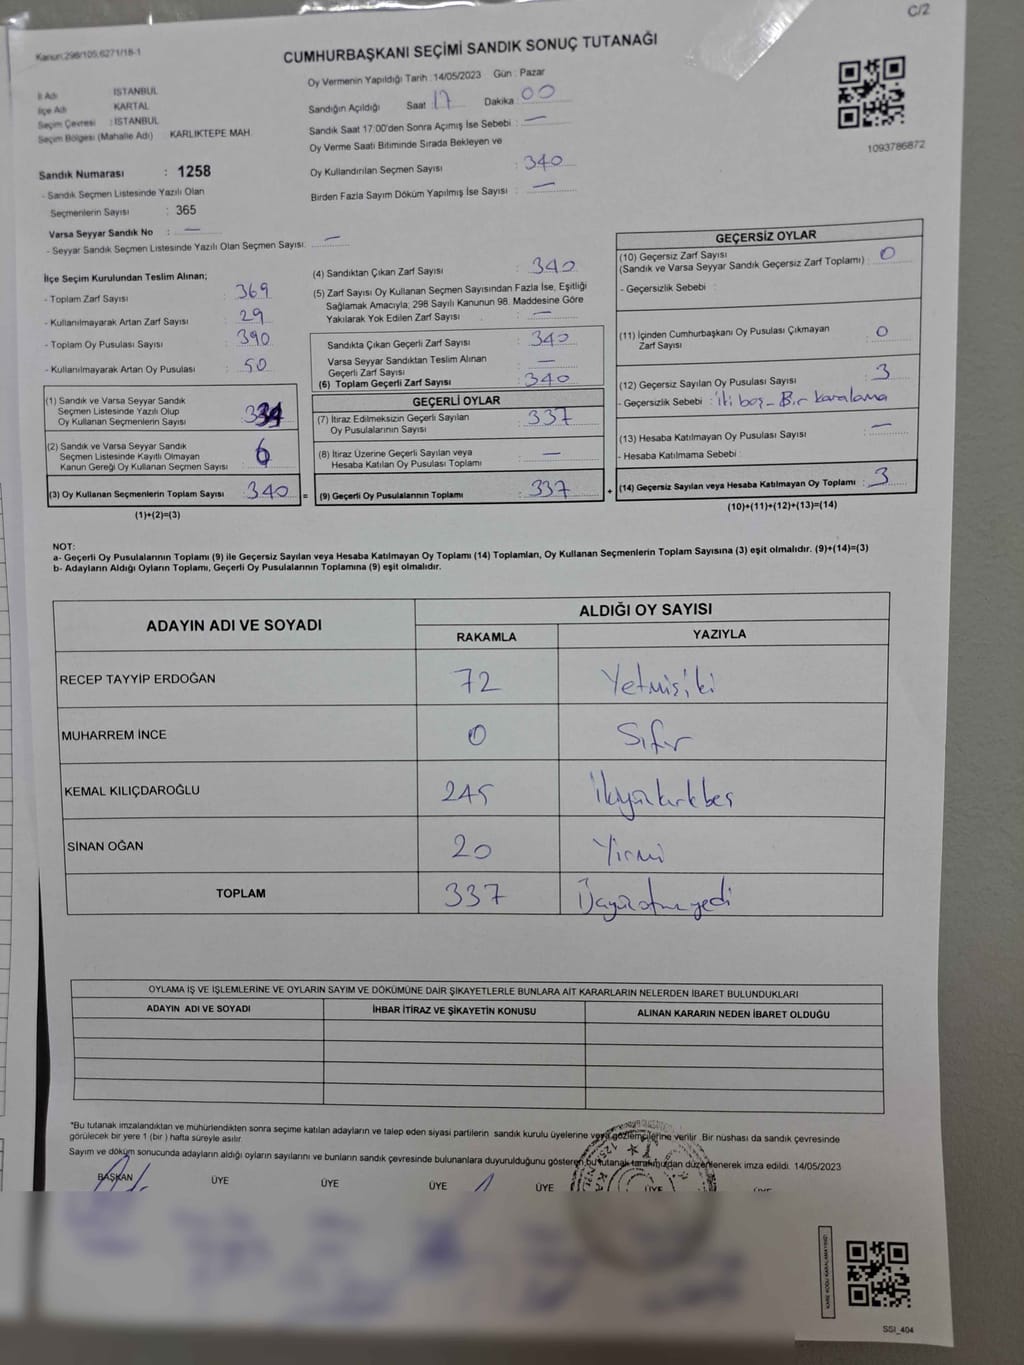 C/2
Kanun:298/105,6271/18-1
CUMHURBAŞKANI SEÇİMİ SANDIK SONUÇ TUTANAĞI
İl Adı : İSTANBUL
İlçe Adı : KARTAL
Seçim Çevresi : İSTANBUL
Seçim Bölgesi (Mahalle Adı) : KARLIKTEPE MAH.
Sandık Numarası : 1258
- Sandık Seçmen Listesinde Yazılı Olan
Seçmenlerin Sayısı : 365
Varsa Seyyar Sandık No : —
- Seyyar Sandık Seçmen Listesinde Yazılı Olan Seçmen Sayısı: —
Oy Vermenin Yapıldığı Tarih :14/05/2023 Gün : Pazar
Sandığın Açıldığı Saat : 17 Dakika : 00
Sandık Saat 17:00'den Sonra Açımış İse Sebebi : —
Oy Verme Saati Bitiminde Sırada Bekleyen ve
Oy Kullandırılan Seçmen Sayısı : 340
Birden Fazla Sayım Döküm Yapılmış İse Sayısı : —
1093786872
İlçe Seçim Kurulundan Teslim Alınan;
- Toplam Zarf Sayısı : 369
- Kullanılmayarak Artan Zarf Sayısı : 29
- Toplam Oy Pusulası Sayısı : 390
- Kullanılmayarak Artan Oy Pusulası : 50
(1) Sandık ve Varsa Seyyar Sandık
Seçmen Listesinde Yazılı Olup
Oy Kullanan Seçmenlerin Sayısı : 334
(2) Sandık ve Varsa Seyyar Sandık
Seçmen Listesinde Kayıtlı Olmayan
Kanun Gereği Oy Kullanan Seçmen Sayısı : 6
(3) Oy Kullanan Seçmenlerin Toplam Sayısı : 340
(1)+(2)=(3)
(4) Sandıktan Çıkan Zarf Sayısı : 340
(5) Zarf Sayısı Oy Kullanan Seçmen Sayısından Fazla İse, Eşitliği
Sağlamak Amacıyla; 298 Sayılı Kanunun 98. Maddesine Göre
Yakılarak Yok Edilen Zarf Sayısı : —
Sandıkta Çıkan Geçerli Zarf Sayısı : 340
Varsa Seyyar Sandıktan Teslim Alınan
Geçerli Zarf Sayısı : —
(6) Toplam Geçerli Zarf Sayısı : 340
GEÇERLİ OYLAR
(7) İtiraz Edilmeksizin Geçerli Sayılan
Oy Pusulalarının Sayısı : 337
(8) İtiraz Üzerine Geçerli Sayılan veya
Hesaba Katılan Oy Pusulası Toplamı : —
= (9) Geçerli Oy Pusulalarının Toplamı : 337 +
GEÇERSİZ OYLAR
(10) Geçersiz Zarf Sayısı
(Sandık ve Varsa Seyyar Sandık Geçersiz Zarf Toplamı) : 0
- Geçersizlik Sebebi :
(11) İçinden Cumhurbaşkanı Oy Pusulası Çıkmayan
Zarf Sayısı : 0
(12) Geçersiz Sayılan Oy Pusulası Sayısı : 3
- Geçersizlik Sebebi : iki boş - Bir karalama
(13) Hesaba Katılmayan Oy Pusulası Sayısı : —
- Hesaba Katılmama Sebebi :
(14) Geçersiz Sayılan veya Hesaba Katılmayan Oy Toplamı : 3
(10)+(11)+(12)+(13)=(14)
NOT:
a- Geçerli Oy Pusulalarının Toplamı (9) ile Geçersiz Sayılan veya Hesaba Katılmayan Oy Toplamı (14) Toplamları, Oy Kullanan Seçmenlerin Toplam Sayısına (3) eşit olmalıdır. (9)+(14)=(3)
b- Adayların Aldığı Oyların Toplamı, Geçerli Oy Pusulalarının Toplamına (9) eşit olmalıdır.
ADAYIN ADI VE SOYADI ALDIĞI OY SAYISI
RAKAMLA YAZIYLA
RECEP TAYYİP ERDOĞAN 72 Yetmişiki
MUHARREM İNCE 0 Sıfır
KEMAL KILIÇDAROĞLU 245 İkiyüzkırkbeş
SİNAN OĞAN 20 Yirmi
TOPLAM 337 Üçyüzotuzyedi
OYLAMA İŞ VE İŞLEMLERİNE VE OYLARIN SAYIM VE DÖKÜMÜNE DAİR ŞİKAYETLERLE BUNLARA AİT KARARLARIN NELERDEN İBARET BULUNDUKLARI
ADAYIN ADI VE SOYADI İHBAR İTİRAZ VE ŞİKAYETİN KONUSU ALINAN KARARIN NEDEN İBARET OLDUĞU
*Bu tutanak imzalandıktan ve mühürlendikten sonra seçime katılan adayların ve talep eden siyasi partilerin sandık kurulu üyelerine veya gözlemcilerine verilir. Bir nüshası da sandık çevresinde
görülecek bir yere 1 (bir) hafta süreyle asılır.
Sayım ve döküm sonucunda adayların aldığı oyların sayılarını ve bunların sandık çevresinde bulunanlara duyurulduğunu gösteren bu tutanak tarafımızdan düzenlenerek imza edildi. 14/05/2023
BAŞKAN ÜYE ÜYE ÜYE ÜYE ÜYE
SSI_404